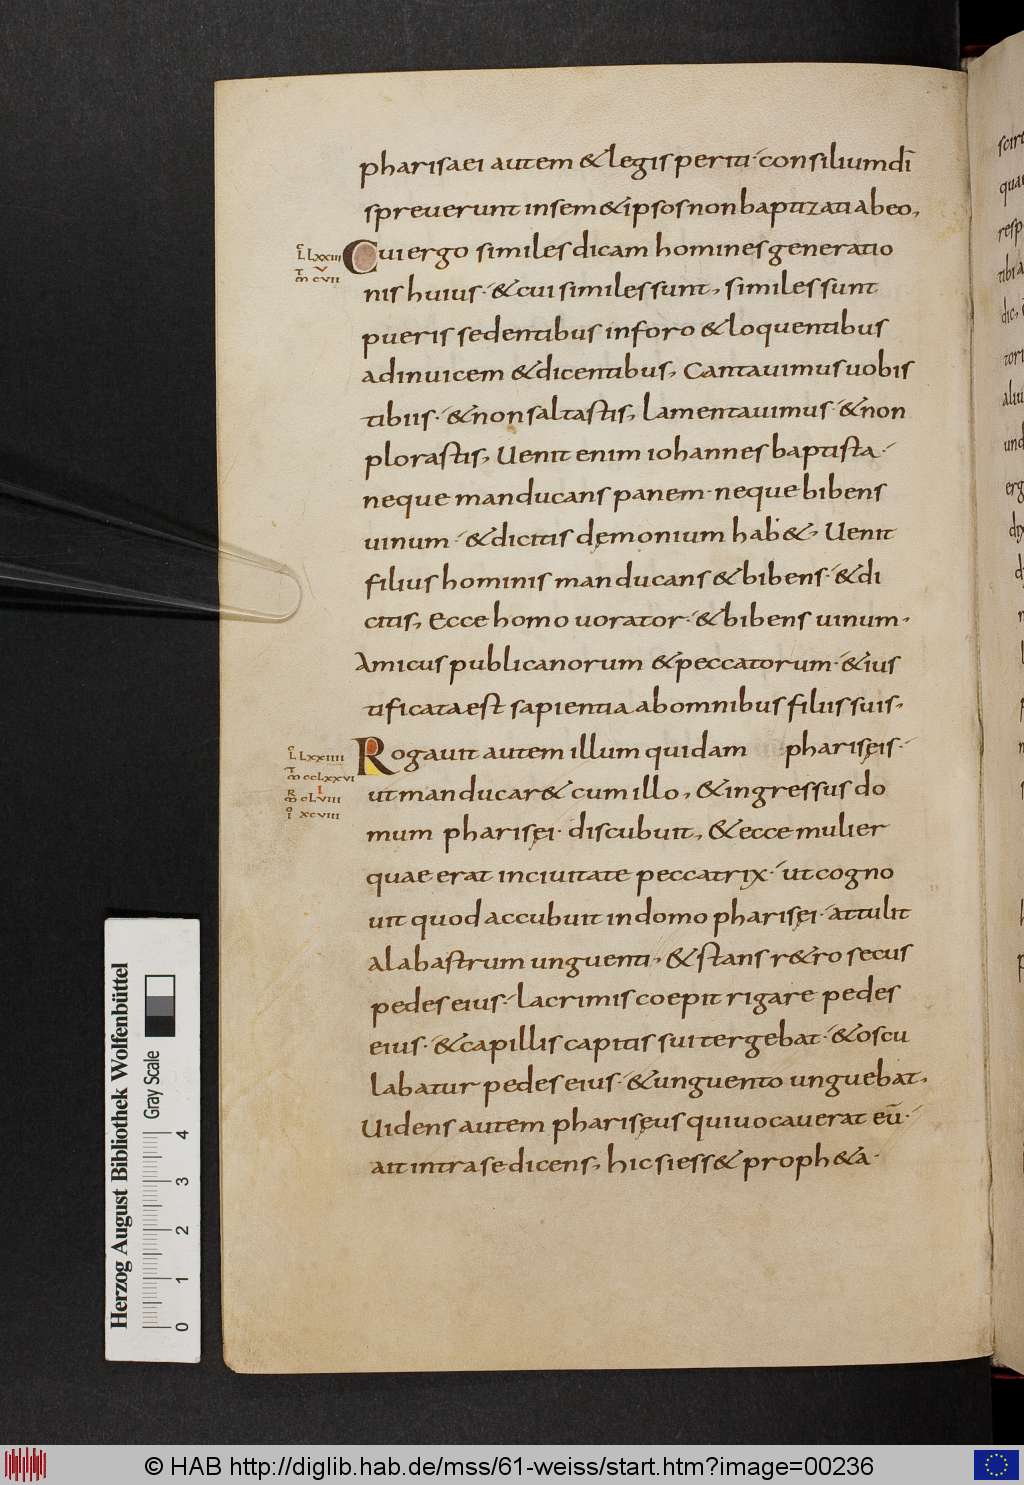 pharisaei autem & legis periti· consilium dī
spreuerunt in sem&ipsos non baptizati ab eo,
L LXXIII
M CVII
Cui ergo similes dicam homines generatio
nis huius· & cui similes sunt, similes sunt
pueris sedentibus in foro & loquentibus
ad inuicem & dicentibus, Cantauimus uobis
tibiis· & non saltastis, lamentauimus· & non
plorastis, Uenit enim iohannes baptista·
neque manducans panem· neque bibens
uinum· & dicitis dęmonium hab&, Uenit
filius hominis manducans & bibens· & di
citis, Ecce homo uorator· & bibens uinum·
Amicus publicanorum & peccatorum· & ius
tificata est sapientia ab omnibus filiis suis,
L LXXIIII
M CCLXXVI
M CLVIII
I XCVIII
Rogauit autem illum quidam pharisęis·
ut manducar& cum illo, & ingressus do
mum pharisęi· discubuit, & ecce mulier
quae erat in ciuitate peccatrix· ut cogno
uit quod accubuit in domo pharisęi· attulit
alabastrum unguenti, & stans r&ro secus
pedes eius· lacrimis coepit rigare pedes
eius· & capillis capitis sui tergebat· & oscu
labatur pedes eius· & unguento unguebat,
Uidens autem pharisęus qui uocauerat eū·
ait intra se dicens, hic si ess& proph&a·
quae
resp
tibia
dic,
alii
und
erg
Herzog August Bibliothek Wolfenbüttel
Gray Scale
0 1 2 3 4
© HAB http://diglib.hab.de/mss/61-weiss/start.htm?image=00236